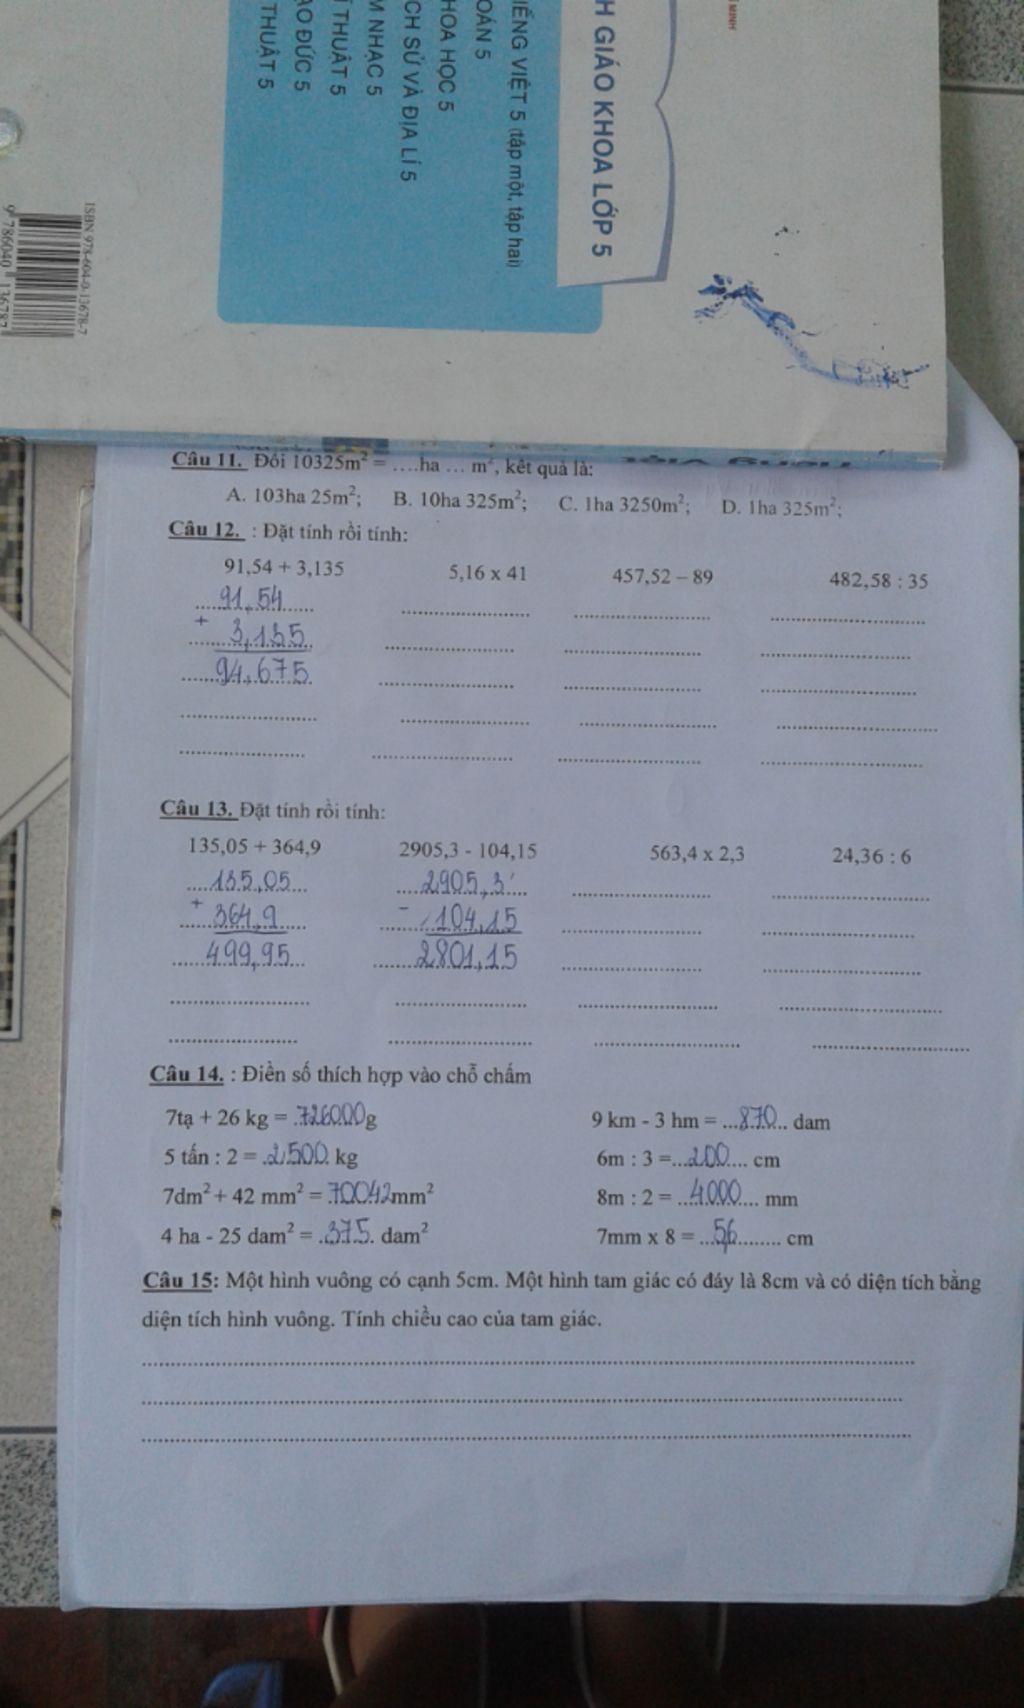 H GIÁO KHOA LỚP 5
IẾNG VIỆT 5 (tập một, tập hai)
OÁN 5
HOA HỌC 5
CH SỬ VÀ ĐỊA LÍ 5
M NHẠC 5
Ĩ THUẬT 5
ẠO ĐỨC 5
THUẬT 5
ISBN 978-604-0-13678-7
9 786040 136787
Câu 11. Đổi 10325m² = ....ha ... m², kết quả là:
A. 103ha 25m²; B. 10ha 325m²; C. 1ha 3250m²; D. 1ha 325m²;
Câu 12. : Đặt tính rồi tính:
91,54 + 3,135 5,16 x 41 457,52 – 89 482,58 : 35
91,54
+ 3,135
94,675
Câu 13. Đặt tính rồi tính:
135,05 + 364,9 2905,3 - 104,15 563,4 x 2,3 24,36 : 6
135,05 2905,3
+ 364,9 - 104,15
499,95 2801,15
Câu 14. : Điền số thích hợp vào chỗ chấm
7tạ + 26 kg = 726000g 9 km - 3 hm = ...870... dam
5 tấn : 2 = .2500. kg 6m : 3 =...200.... cm
7dm² + 42 mm² = 70042mm² 8m : 2 = ..4000.... mm
4 ha - 25 dam² = .375. dam² 7mm x 8 = ...56........ cm
Câu 15: Một hình vuông có cạnh 5cm. Một hình tam giác có đáy là 8cm và có diện tích bằng
diện tích hình vuông. Tính chiều cao của tam giác.